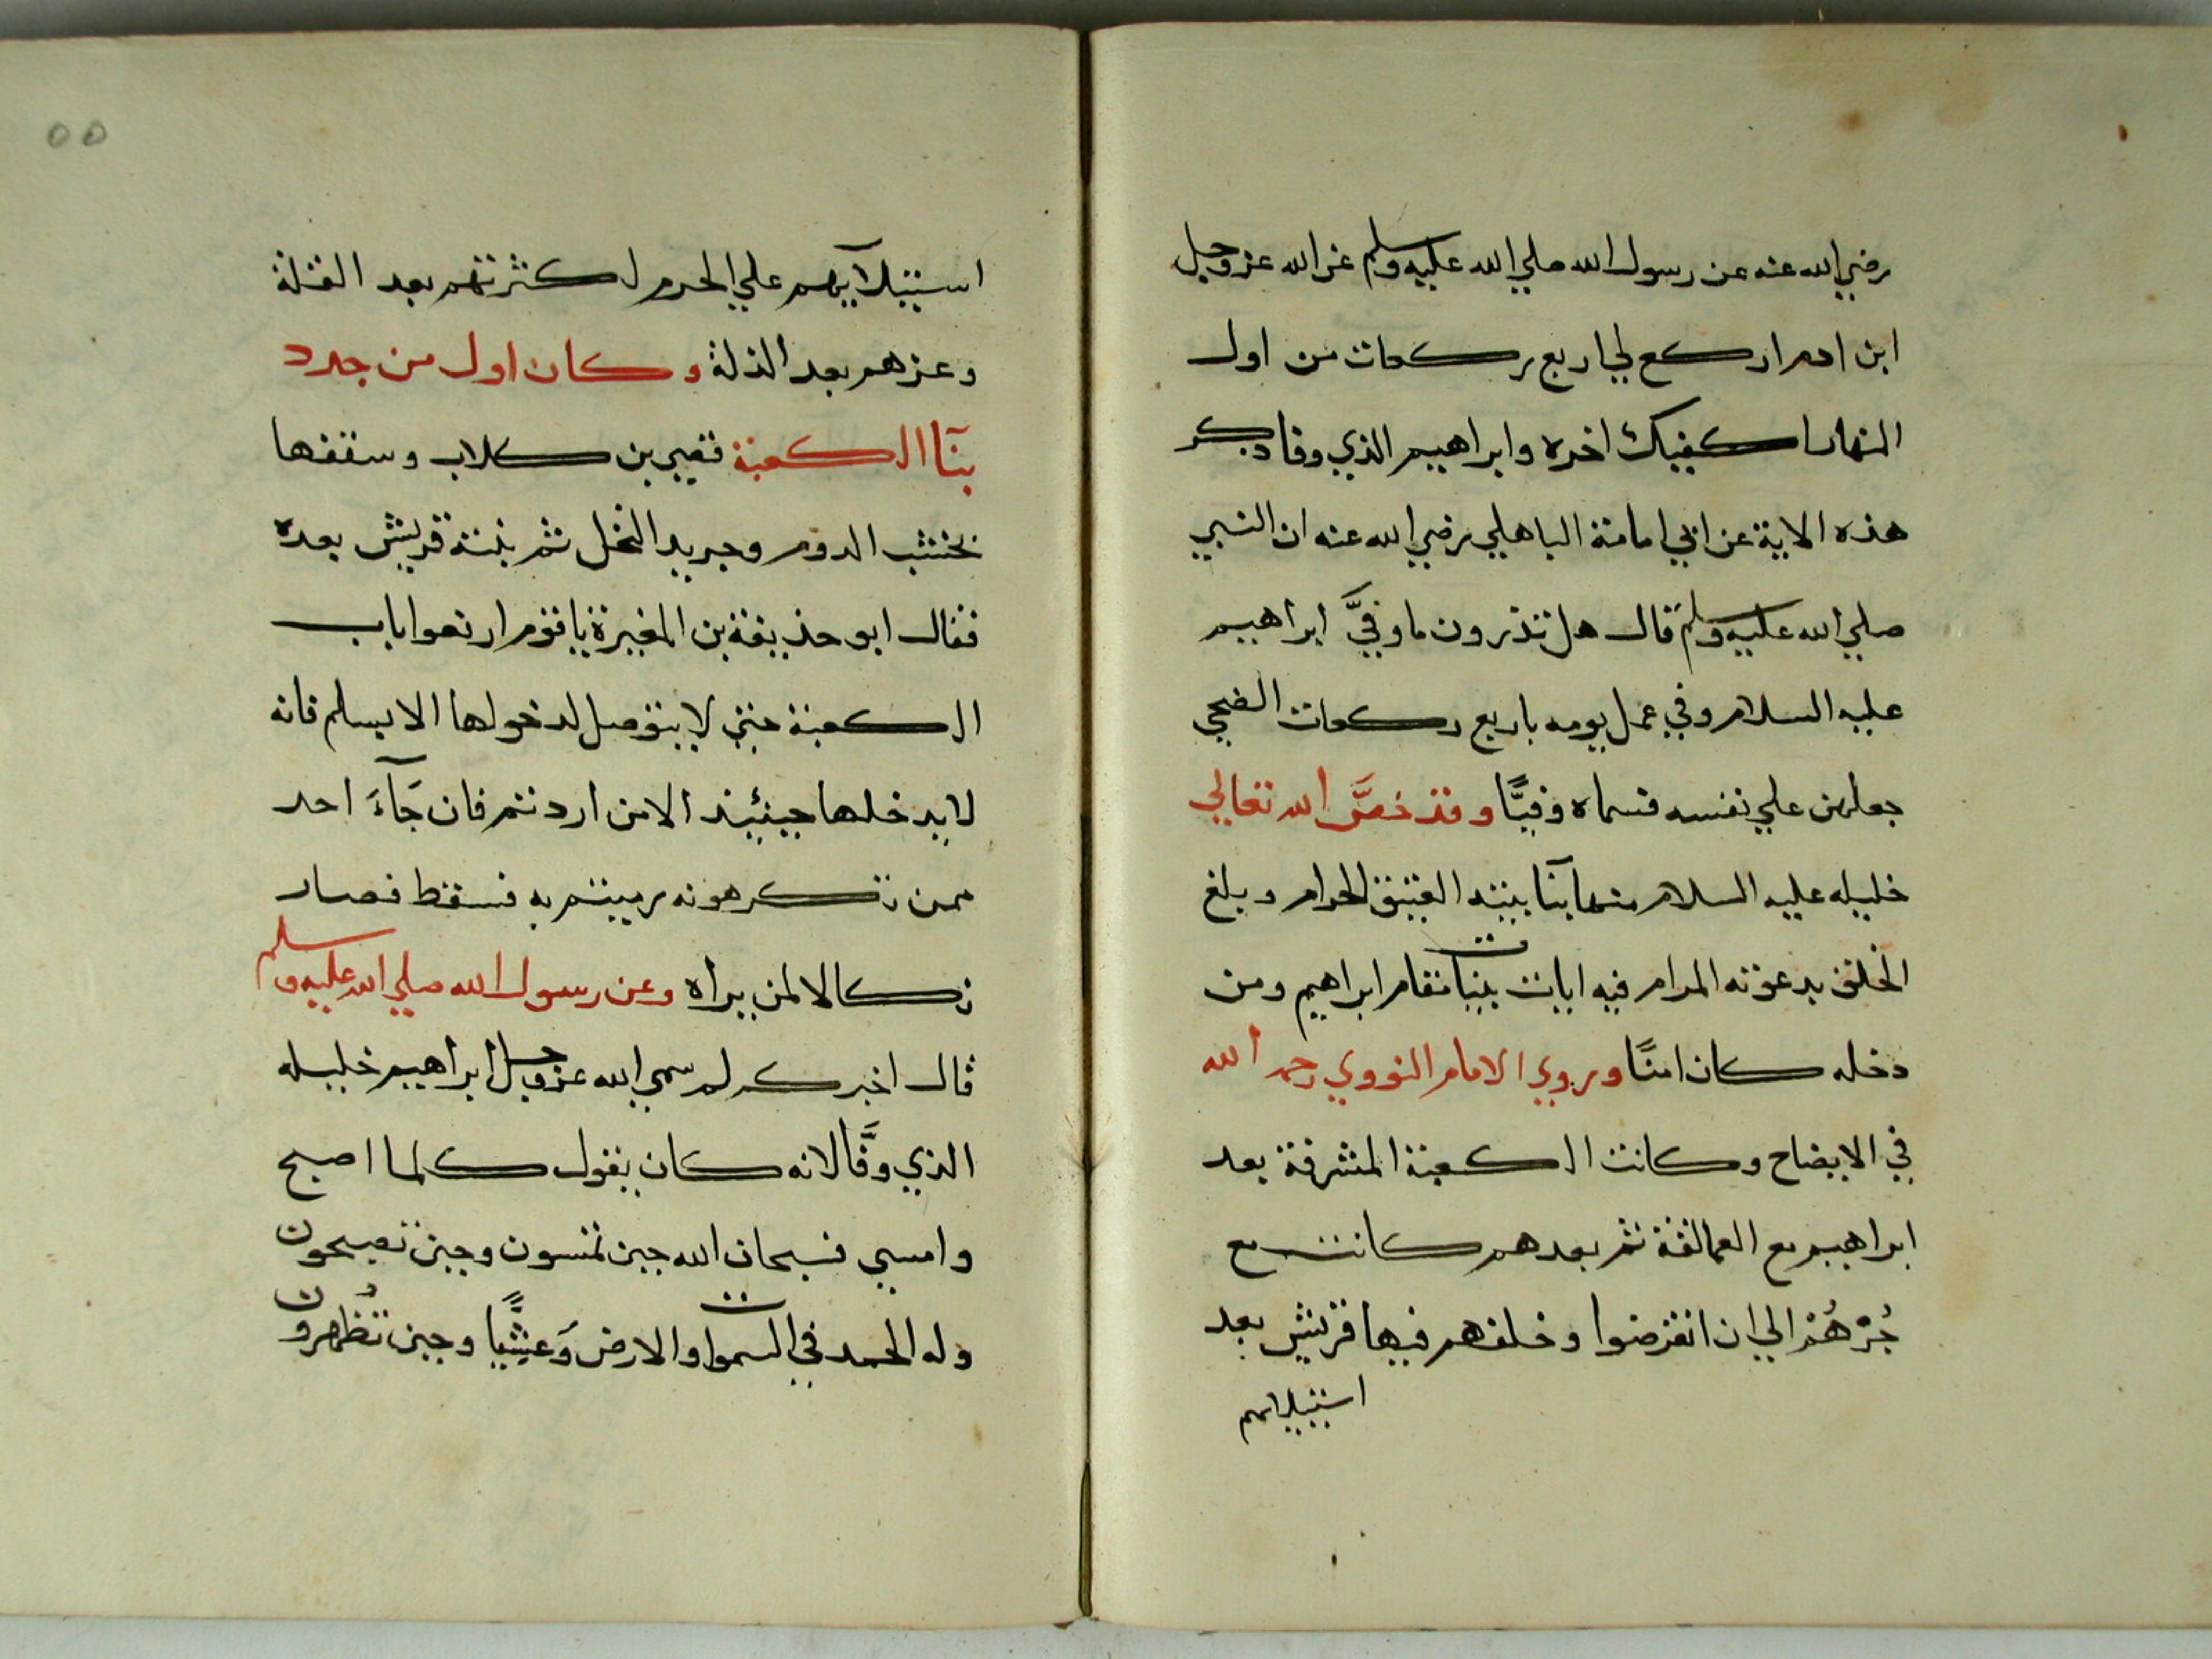 رضي الله عنه عن رسول الله صلي الله عليه وسلم عن الله عز وجل
ابن ادم اركع لي اربع ركعات من اول
النهار اكفيك اخره وابراهيم الذي وفا ذكر
هذه الاية عن ابي امامة الباهلي رضي الله عنه ان النبي
صلي الله عليه وسلم قال هل تدرون ما وفيَّ ابراهيم
عليه السلام وفي عمل يومه باربع ركعات الضحي
جعلهن علي نفسه فسماه وفيًّا وقد خصَّ الله تعالي
خليله عليه السلام منها بنآ بيته العتيق الحرام وبلغ
الخلق بدعوته المرام فيه ايات بينات مقام ابراهيم ومن
دخله كان امنًا وروي الامام النووي رحمه الله
في الايضاح وكانت الكعبة المشرفة بعد
ابراهيم مع العمالقة ثم بعدهم كانت مع
جُرْهُم الي ان انقرضوا وخلفهم فيها قريش بعد
استيلائهم
٥٥
استيلآيهم علي الحرم لكثرتهم بعد القلة
وعزهم بعد الذلة وكان اول من جدد
بنآ الكعبة قصي بن كلاب وسقفها
بخشب الدوم وجريد النخل ثم بنته قريش بعده
فقال ابو حذيفة بن المغيرة يا قوم ارفعوا باب
الكعبة حتي لا يتوصل لدخولها الا بسلم فانه
لا يدخلها حينئيذ الا من اردتم فان جَآءَ احد
ممن تكرهونه رميتم به فسقط فصار
نكالا لمن يراه وعن رسول الله صلي الله عليه وسلم
قال اخبركم لم سمي الله عز وجل ابراهيم خليله
الذي وفَّا لانه كان يقول كلما اصبح
وامسي فسبحان الله حين تمسون وحين تصبحون
وله الحمد في السموات والارض وَعشيًّا وحين تُظهرون